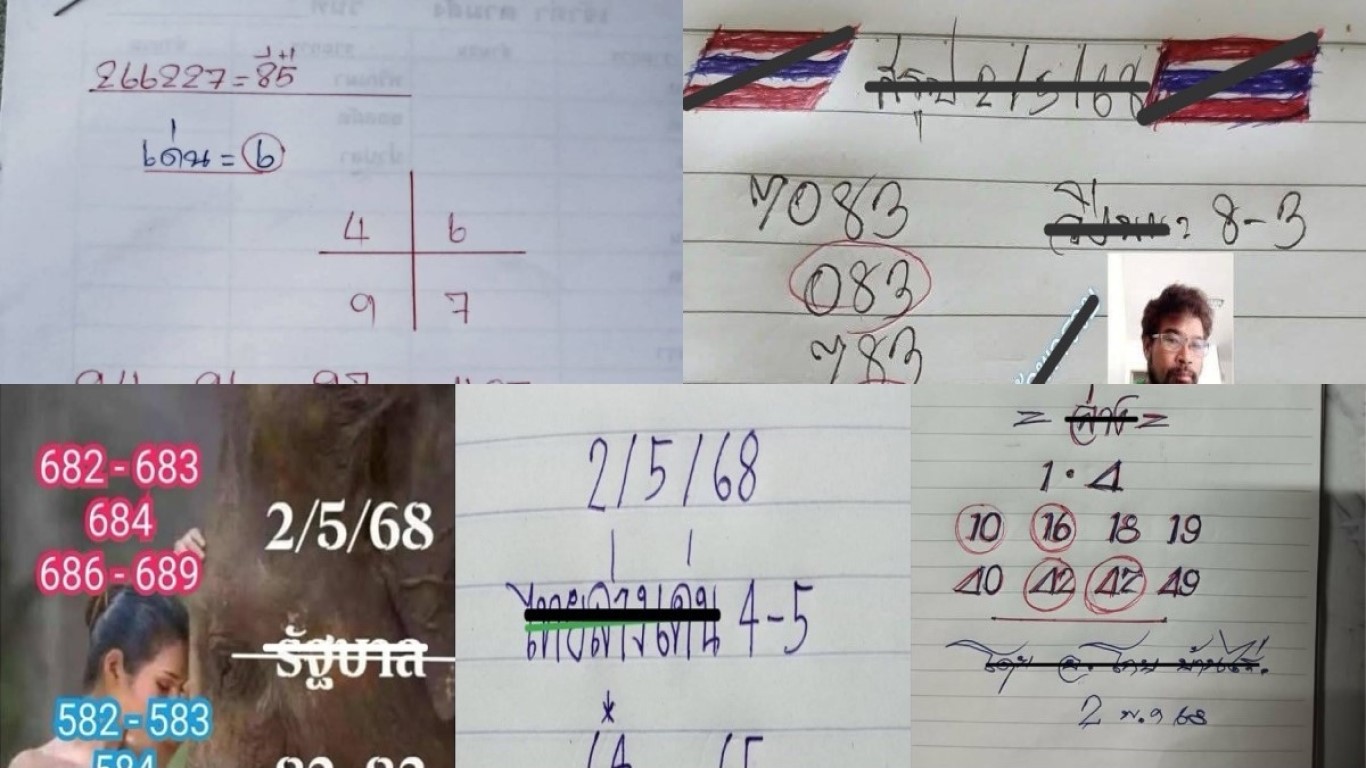 266227 = 85
เด่น = 6
4 6
9 7
สรุป 2/5/68
7083
083
783
= 8-3
682 - 683
684
686 - 689
2/5/68
รัฐบาล
582 - 583
584
2/5/68
ไทยล่างเด่น 4-5
*
= ล่าง =
1 · 4
10 16 18 19
40 42 47 49
2 พ.ค 68